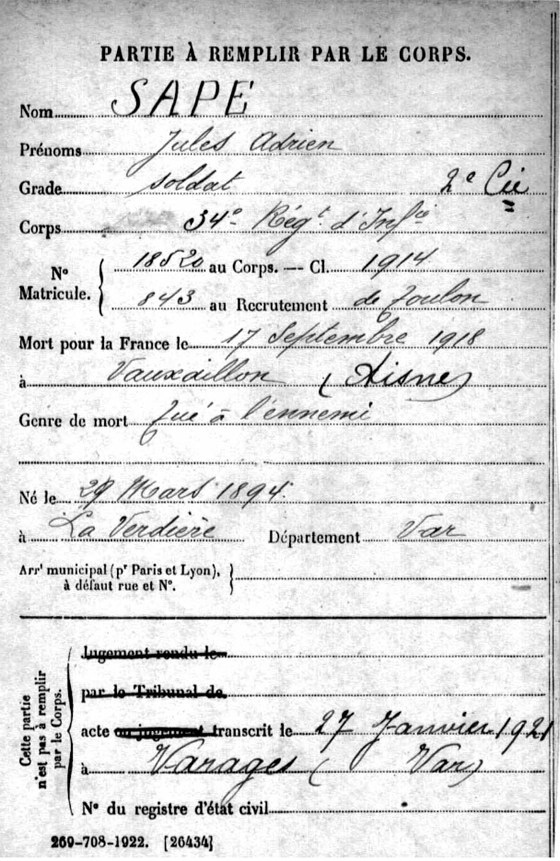 PARTIE À REMPLIR PAR LE CORPS.
Nom SAPE
Prénoms Jules Adrien
Grade soldat 2e Cie
Corps 34e Régt d'Infie
No Matricule. 18520 au Corps. — Cl. 1914
843 au Recrutement de Toulon
Mort pour la France le 17 Septembre 1918
à Vauxaillon (Aisne)
Genre de mort Tué à l'ennemi
Né le 29 Mars 1894.
à La Verdière Département Var
Arrt municipal (pr Paris et Lyon),
à défaut rue et No.
Cette partie
n'est pas à remplir
par le Corps.
Jugement rendu le
par le Tribunal de
acte ou jugement transcrit le 27 Janvier 1921
à Varages (Var)
No du registre d'état civil
269-708-1922. [26434]